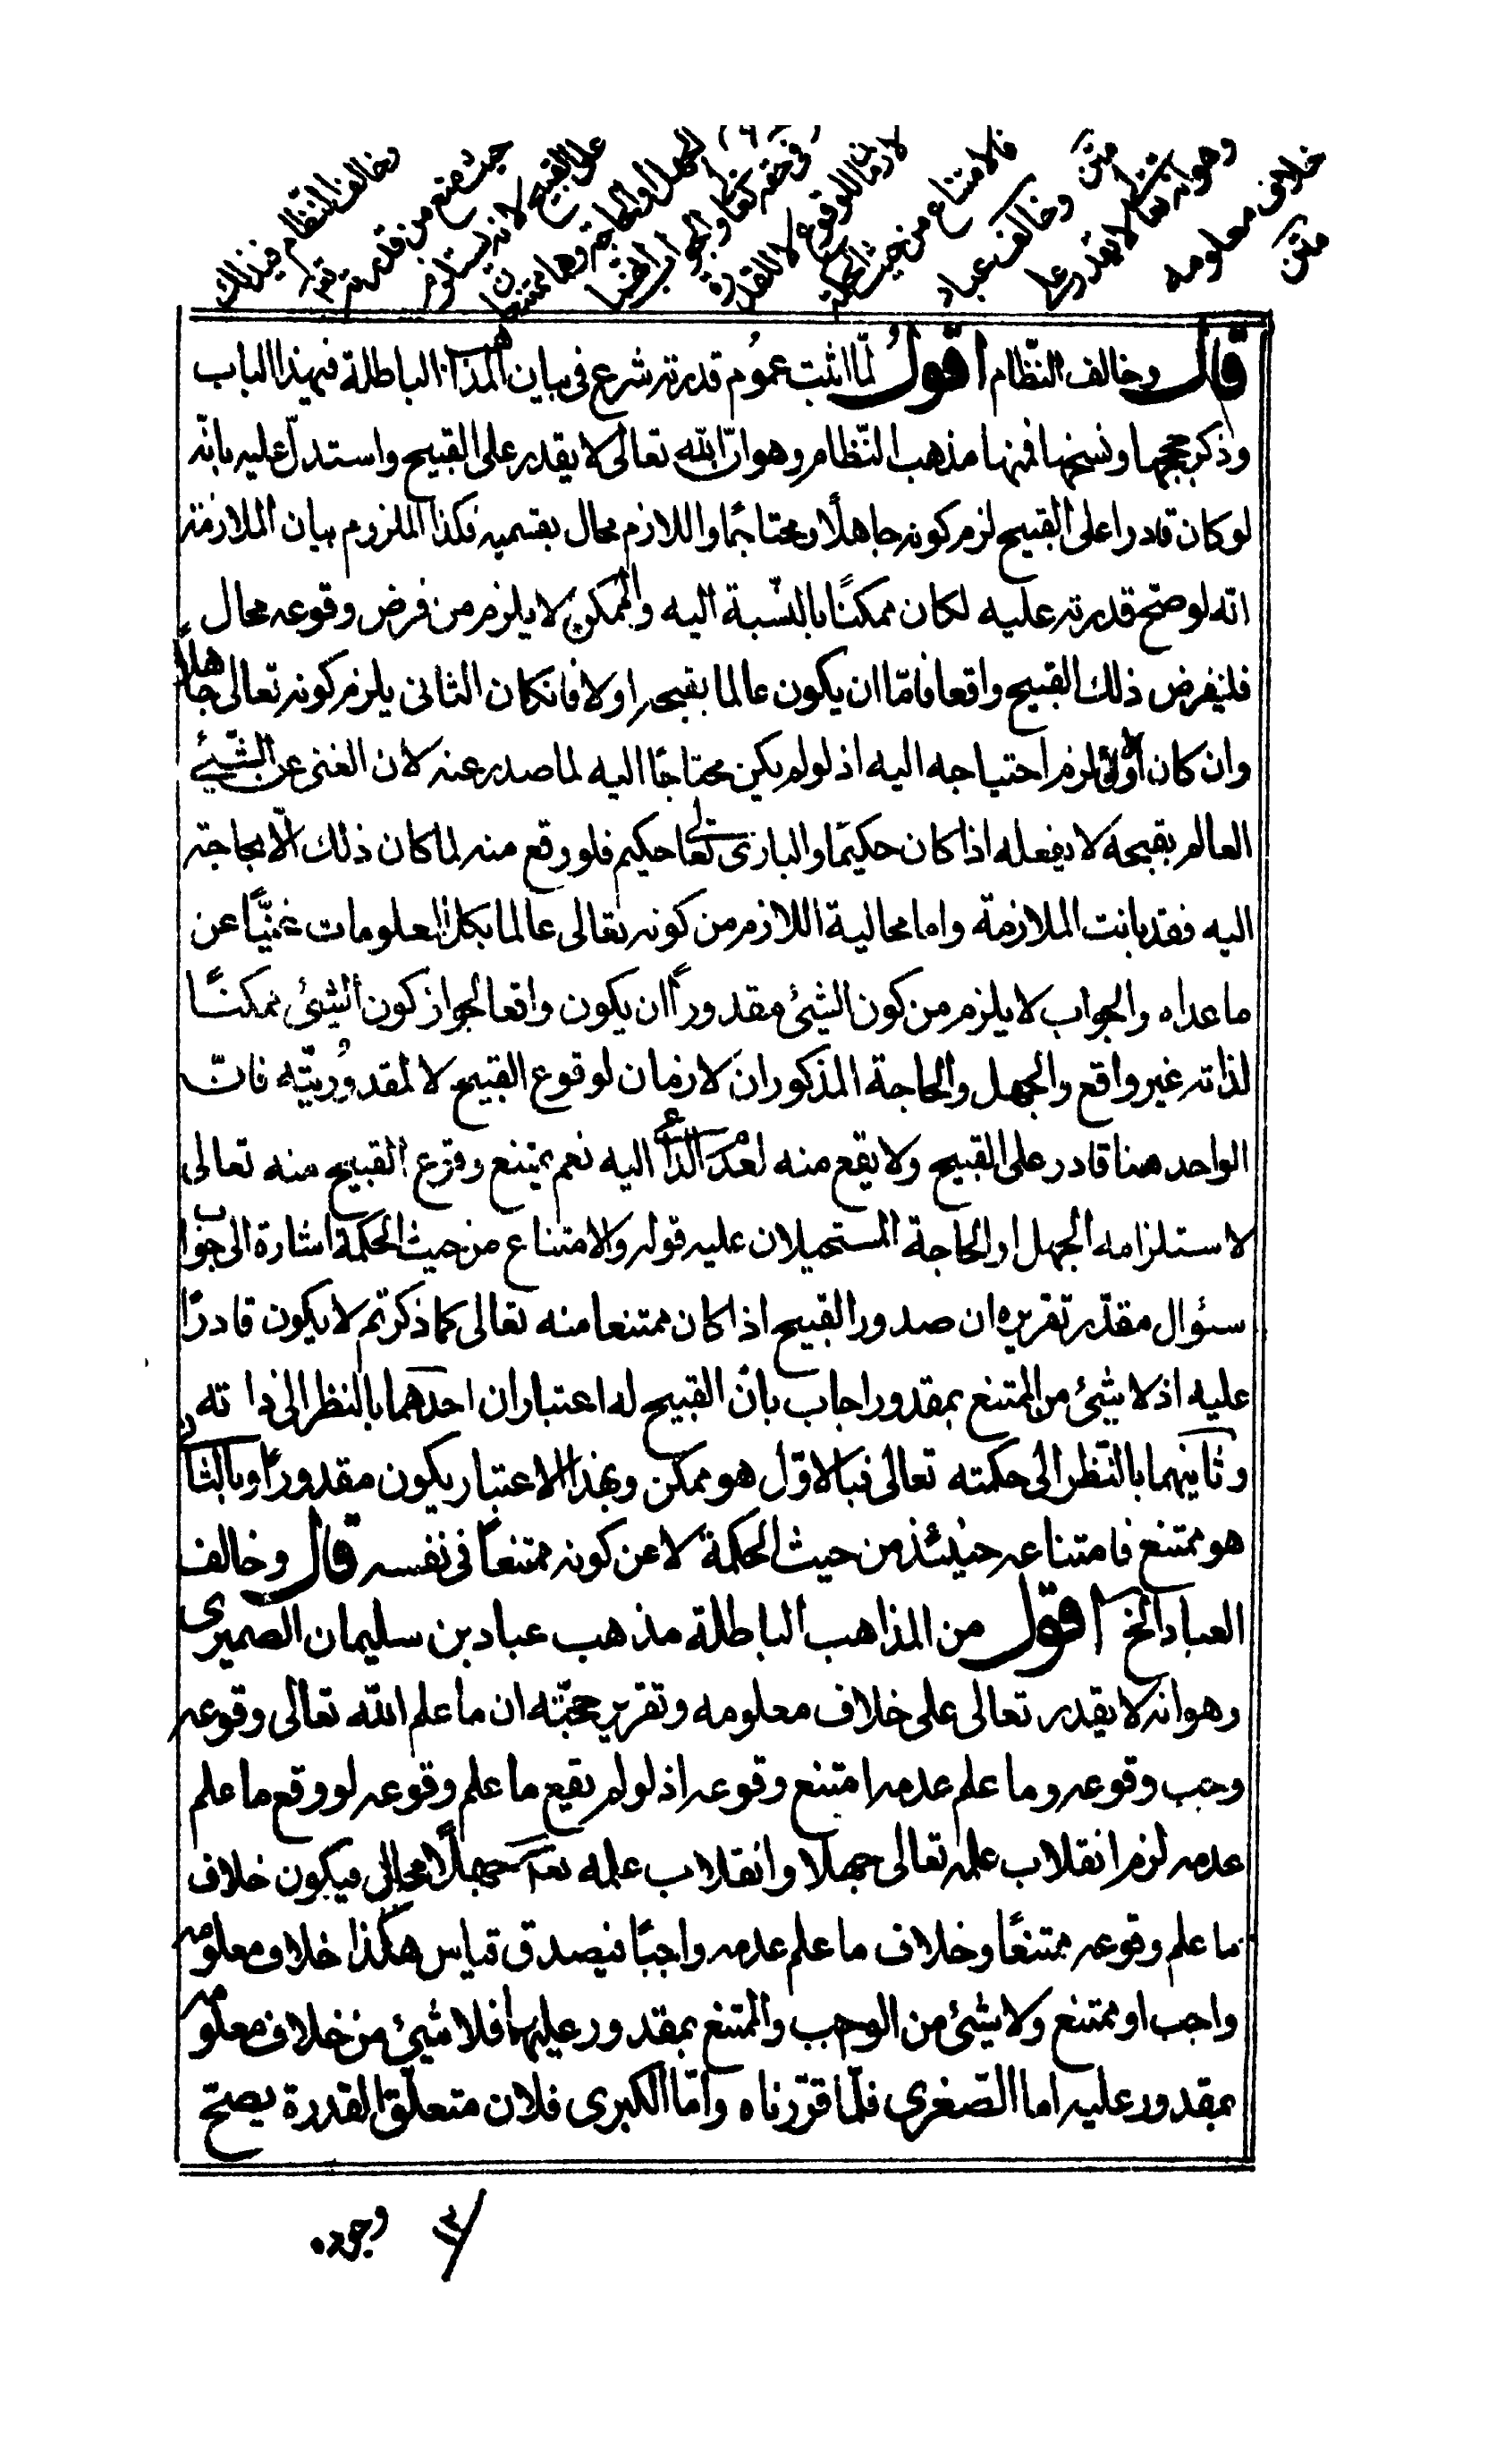 وخالف النظام فيذلك
حيث منع من قدرته تعالى
على القبيح لانه يستلزم
الجهل او الحاجة وهما ممتنعان
فى حقه تعالى والجواب انهما
لازمان للوقوع لا للقدرة
فالامتناع من حيث الحكمة
متن وخالف عباد
وهو انه تعالى لا يقدر على
خلاف معلومه
متن
قال وخالف النظّام اقول لمّا اثبت عموم قدرته شرع فى بيان المذاهب الباطلة فيهذا الباب
وذكر حججها ونسخها فمنها مذهب النّظام وهو ان الله تعالى لا يقدر على القبيح واستدلّ عليه بانّه
لو كان قادرا على القبيح لزم كونه جاهلًا او محتاجًا واللازم محال بقسميه فكذا الملزوم بيان الملازمة
انّه لو صحّ قدرته عليه لكان ممكنًا بالنّسبة اليه والممكن لا يلزم من فرض وقوعه محال
فليفرض ذلك القبيح واقعا فامّا ان يكون عالما بقبحه او لا فانكان الثانى يلزم كونه تعالى جاهلًا
وان كان الاول لزم احتياجه اليه اذ لو لم يكن محتاجًا اليه لما صدر عنه لان الغنى عن الشّيئ
العالم بقبحه لا يفعله اذا كان حكيمًا والبارى تعالى حكيم فلو وقع منه لما كان ذلك الّا لحاجته
اليه فقد بانت الملازمة واما محالية اللازم من كونه تعالى عالما بكل المعلومات غنيًّا عن
ما عداه والجواب لا يلزم من كون الشيئ مقدوراً ان يكون واقعا لجواز كون الشيئ ممكنًا
لذاته غير واقع والجهل والحاجة المذكوران لازمان لوقوع القبيح لا لمقدُوريّته فانّ
الواحد منا قادر على القبيح ولا يقع منه لعدم الداعى اليه نعم يمتنع وقوع القبيح منه تعالى
لاستلزامه الجهل او الحاجة المستحيلان عليه قوله والامتناع من حيث الحكمة اشارة الى جواب
سئوال مقدّر تقريره ان صدور القبيح اذا كان ممتنعا منه تعالى كما ذكرتم لا يكون قادرًا
عليه اذ لا شيئ من الممتنع بمقدور اجاب بانّ القبيح له اعتباران احدهما بالنظر الى ذاته
وثانيهما بالنّظر الى حكمته تعالى فبالاوّل هو ممكن وبهذا الاعتبار يكون مقدوراً وبالثانى
هو ممتنع فامتناعه حينئذ من حيث الحكمة لا عن كونه ممتنعاً فى نفسه قال وخالف
العباد الخ اقول من المذاهب الباطلة مذهب عباد بن سليمان الصميرى
وهو انه لا يقدر تعالى على خلاف معلومه وتقرير حجّته ان ما علم الله تعالى وقوعه
وجب وقوعه وما علم عدمه امتنع وقوعه اذ لو لم يقع ما علم وقوعه لو وقع ما علم
عدمه لزم انقلاب علمه تعالى جهلا وانقلاب علمه تعالى جهلًا محال فيكون خلاف
ما علم وقوعه ممتنعًا وخلاف ما علم عدمه واجبًا فيصدق قياس هكذا خلاف معلومه
واجب او ممتنع ولا شيئ من الوجب والممتنع بمقدور عليهما فلا شيئ من خلاف معلومه
بمقدور عليه اما الصّغرى فلمّا قرّرناه وامّا الكبرى فلان متعلّق القدرة يصحّ
وجوده